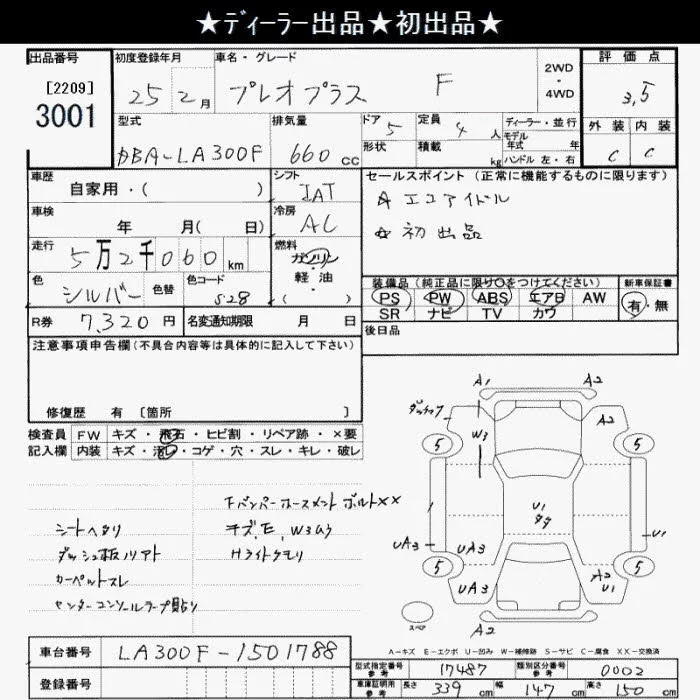 ★ディーラー出品★初出品★
出品番号
[2209]
3001
初度登録年月
25 2月
車名・グレード
プレオプラス F
2WD
・
4WD
評価点
3.5
型式
DBA-LA300F
排気量
660 cc
ドア 5
形状
定員 4 人
積載 kg
ディーラー・並行
モデル
年式 年
ハンドル 左・右
外装 内装
C C
車歴
自家用・( )
シフト
IAT
車検
年 月( 日)
冷房
AC
走行
5万2千060 km
燃料
ガソリン
・
軽油
( )
色
シルバー
色替
色コード
S28
R券 7,320 円
名変通知期限 月 日
セールスポイント(正常に機能するものに限ります)
☆エコアイドル
☆初出品
装備品(純正品に限り○をつけてください)
PS PW ABS エアB AW
SR ナビ TV カワ
新車保証書
有・無
後日品
注意事項申告欄(不具合内容等は具体的に記入して下さい)
修復歴 有 [箇所 ]
検査員
記入欄
FW キズ・飛石・ヒビ割・リペア跡・×要
内装 キズ・汚れ・コゲ・穴・スレ・キレ・破レ
シートヘタリ
ダッシュ板ノリアト
カーペットスレ
センターコンソールテープ貼り
Fバンパーホースメントボルト××
キズ、E、W3ムラ
Hライトクモリ
A1 A2
A2
W3
5 5
U1
UA3 UA3
U1
5 5
UA3
A2
U1
スペア
A2
A-キズ E-エクボ U-凹み W-補修跡 S-サビ C-腐食 XX-交換済
車台番号 LA300F-1501788
登録番号
型式指定番号
参考
17487
類別区分番号
参考
0002
車庫証明用
参考
長さ 339 cm 幅 147 cm 高さ 150 cm